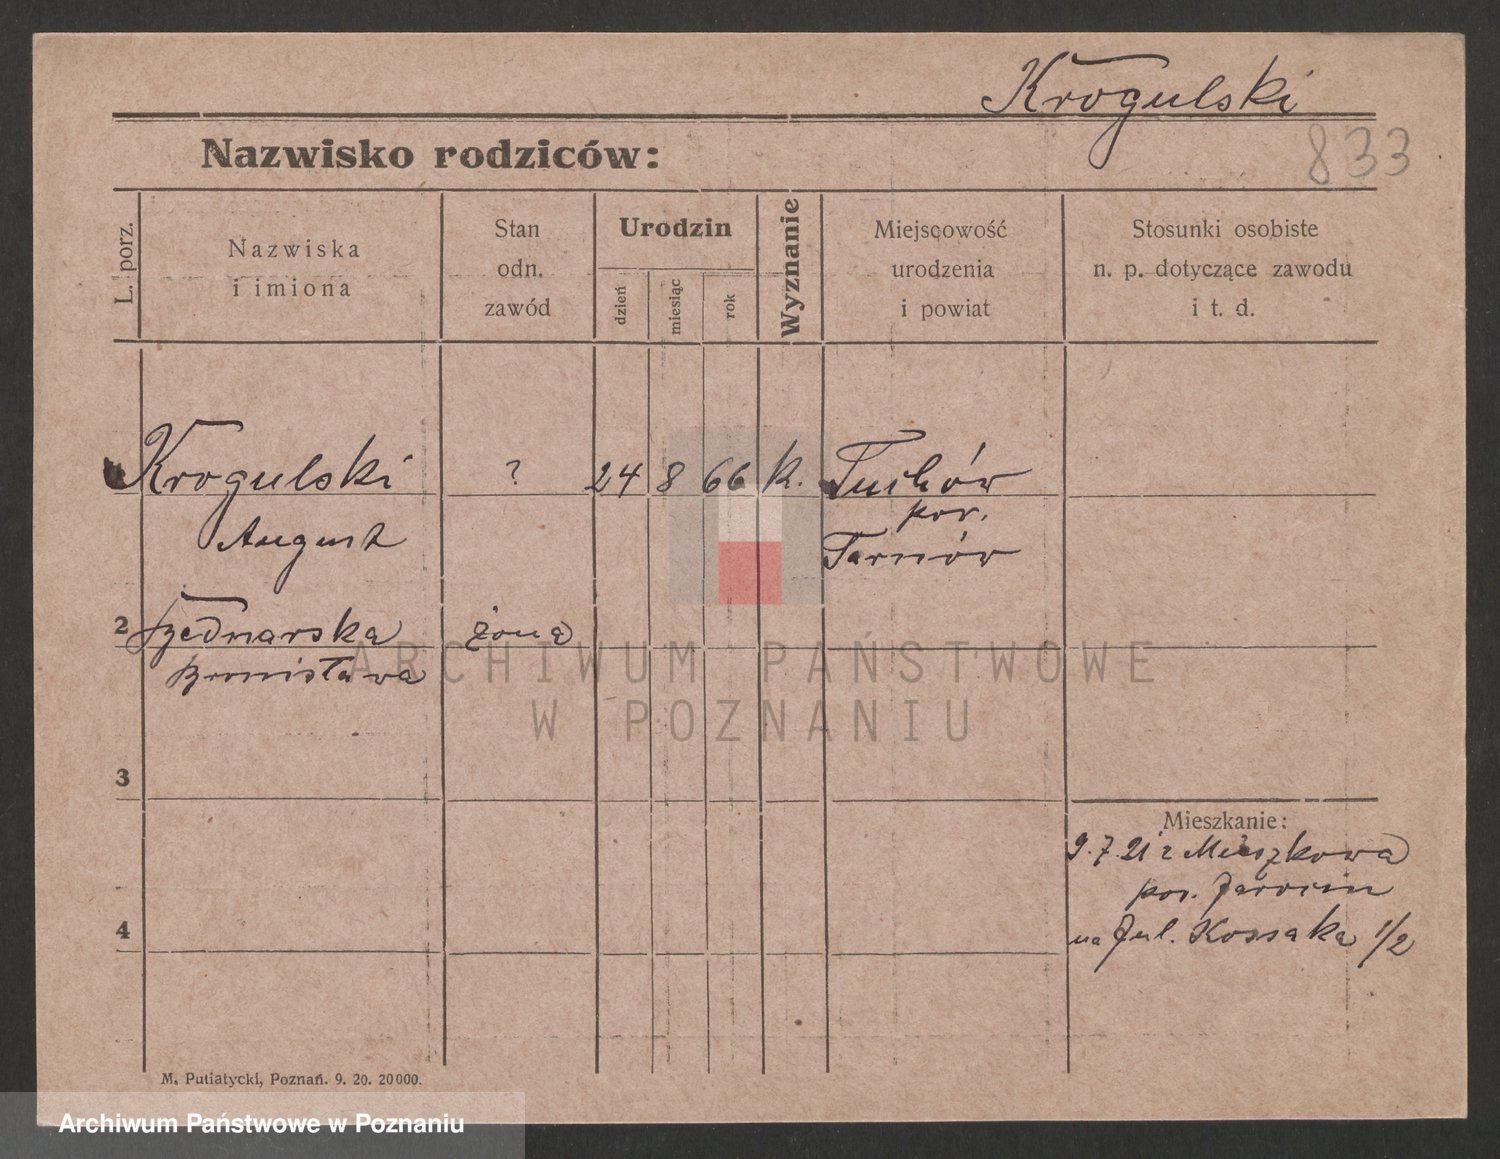 Krogulski
833
Nazwisko rodziców:
L. porz.
Nazwiska
i imiona
Stan
odn.
zawód
Urodzin
dzień
miesiąc
rok
Wyznanie
Miejscowość
urodzenia
i powiat
Stosunki osobiste
n. p. dotyczące zawodu
i t. d.
Krogulski ? 24 8 66 k. Tuchów
August
pow.
Tarnów
2 żona
Bronisława
ARCHIWUM PAŃSTWOWE
W POZNANIU
3
4
Mieszkanie:
9.7.21 z Mieszkowa
pow. Jarocin
na Jul. Kossaka 1/2
M. Putiatycki, Poznań. 9. 20. 20000.
Archiwum Państwowe w Poznaniu